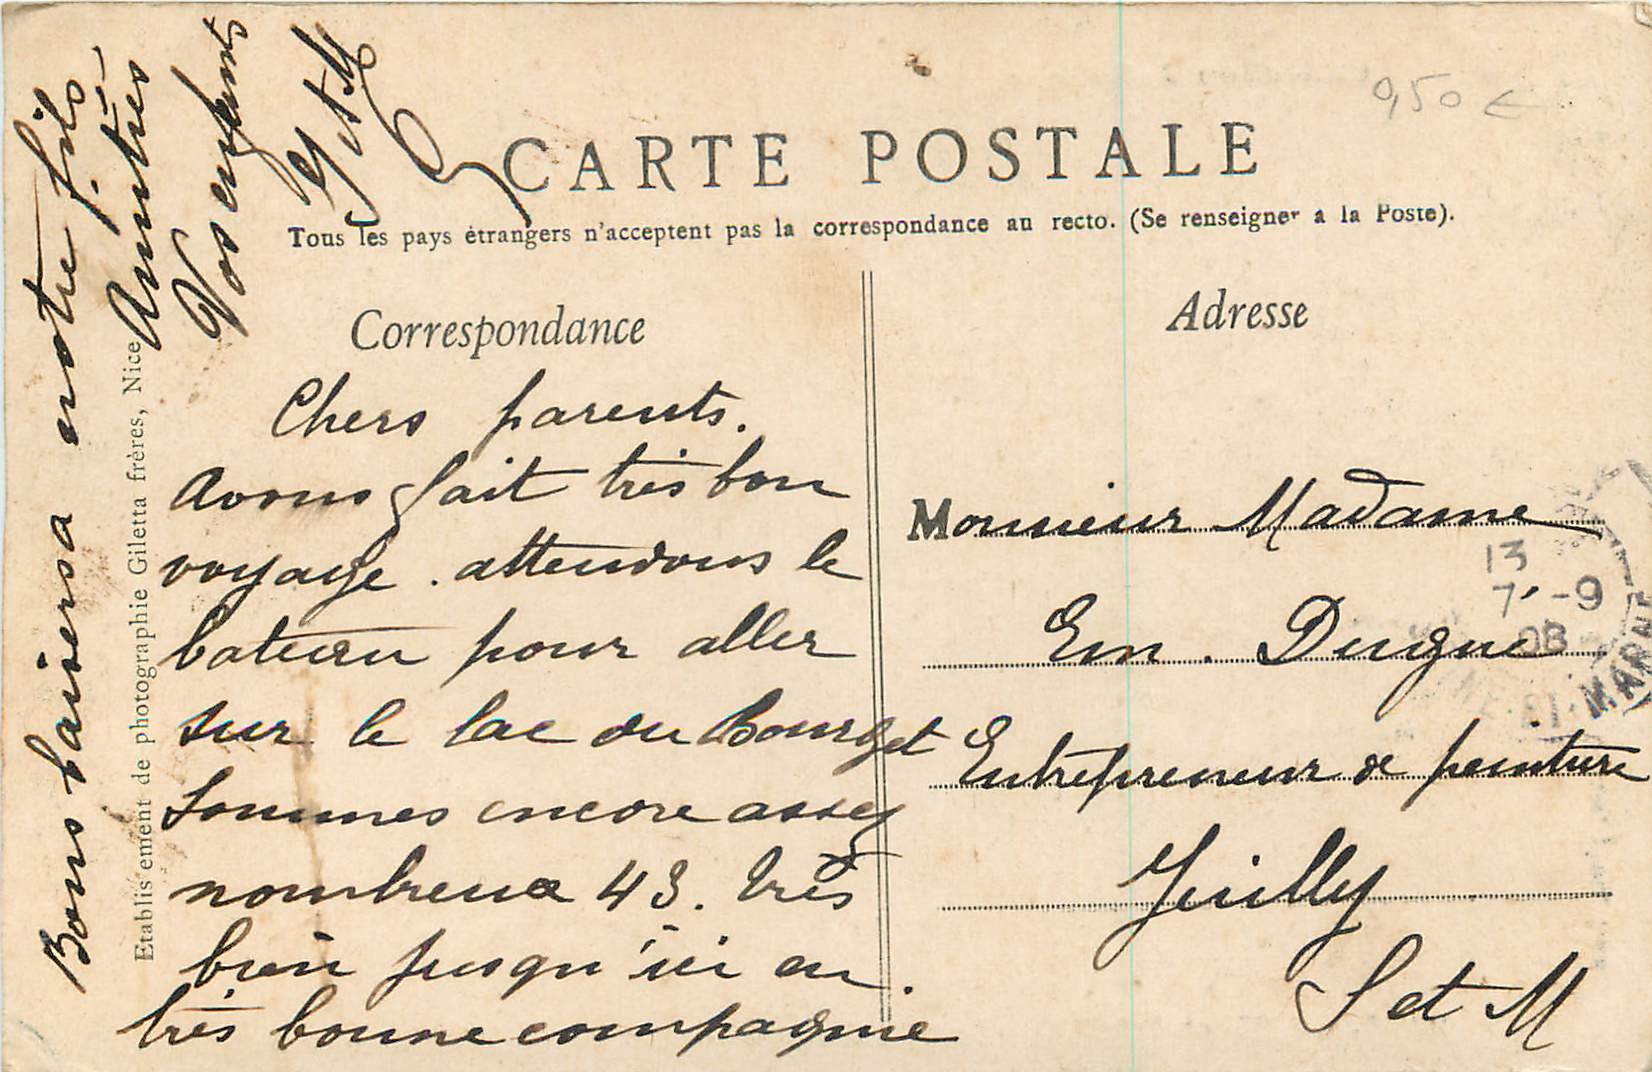 0,50 €
CARTE POSTALE
Tous les pays étrangers n'acceptent pas la correspondance au recto. (Se renseigner a la Poste).
Correspondance
Chers parents.
Avons fait très bon
voyage. attendons le
bateau pour aller
sur le lac du Bourget
Sommes encore assez
nombreux 43. très
bien jusqu'ici en
très bonne compagnie
Bons baisers a notre fils
Amitiés
Vos enfants
Y et M
Etablissement de photographie Giletta frères, Nice
Adresse
Monsieur Madame
Em. Dugué
Entrepreneur de peinture
Juilly
S et M
13
7 - 9
08
NE-ET-MARNE